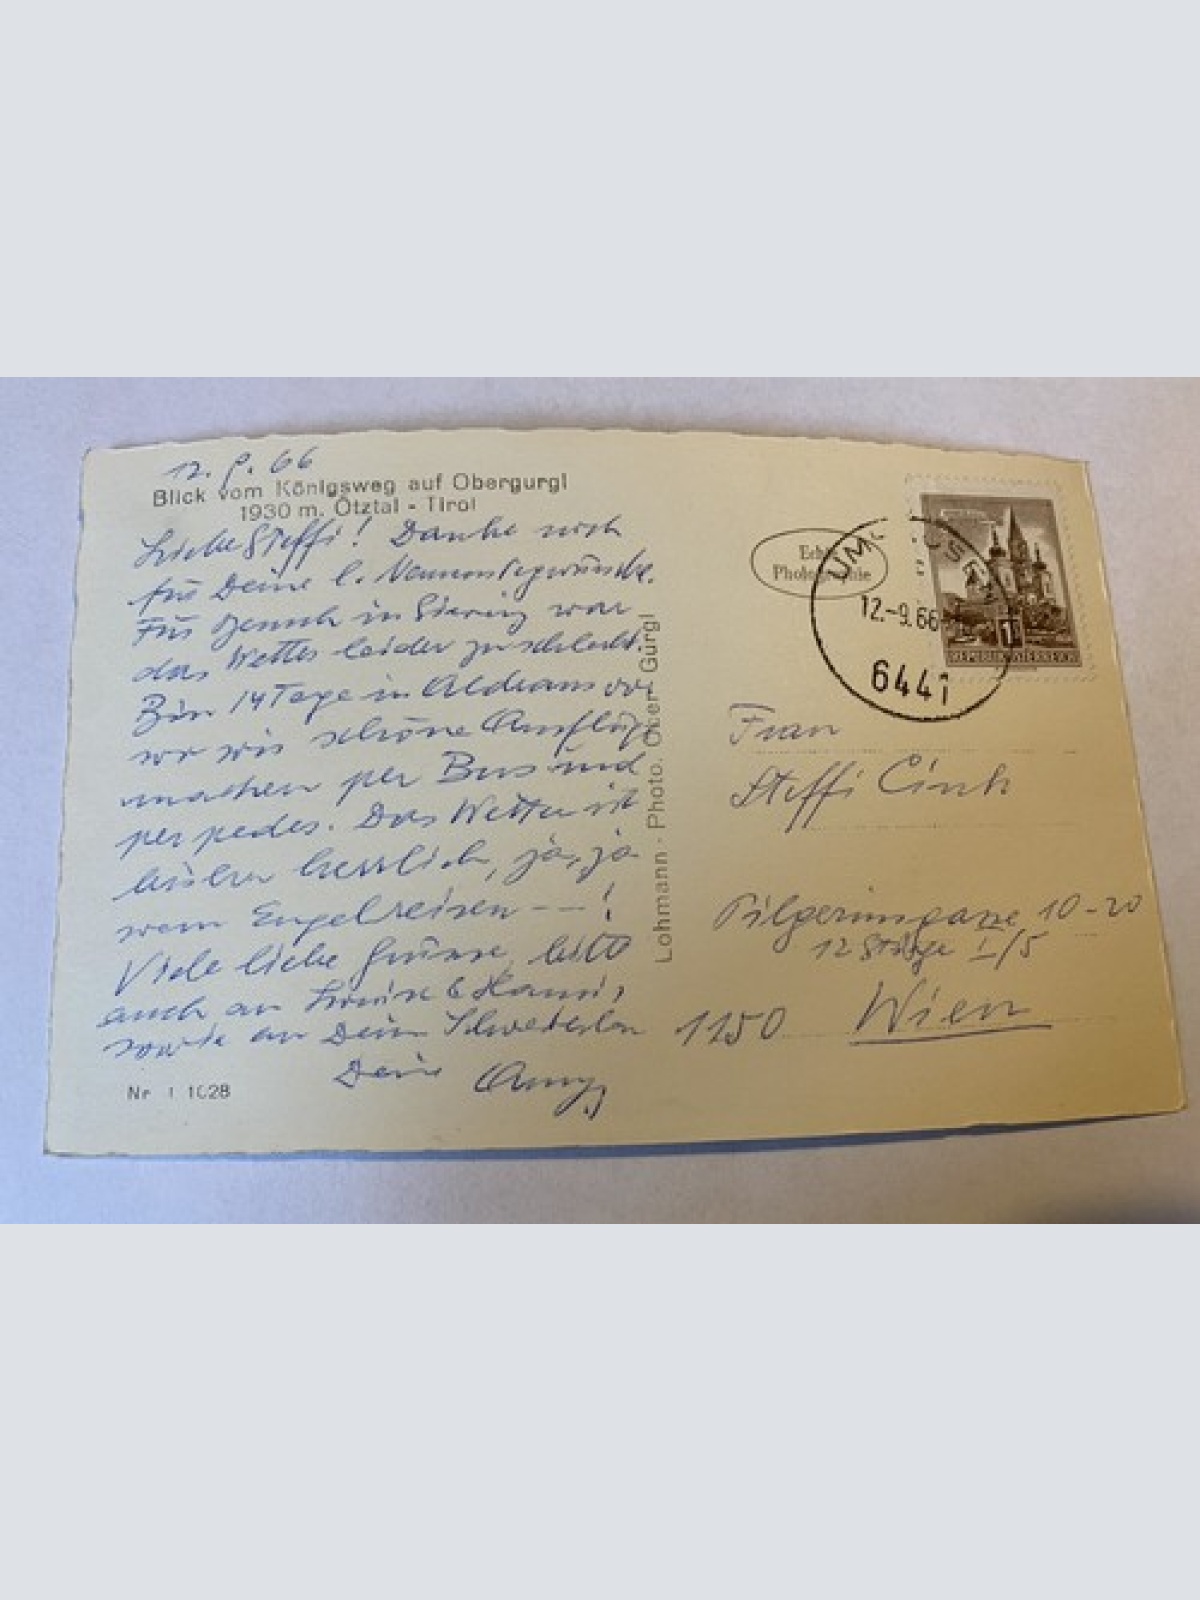 12. 9. 66
Blick vom Königsweg auf Obergurgl
1930 m. Ötztal - Tirol
Liebe Steffi! Danke noch
für Deine l. Namenstagwünsche.
Für Besuch in war
das Wetter leider zu schlecht.
Bin 14 Tage in Aldrans
wo wir schöne Ausflüge
machen per Bus und
per pedes. Das Wetter ist
bisher herrlich, ja, ja
wenn Engel reisen -- !
Viele liebe Grüsse, bitte
auch an & Hansi,
sowie an Dein Schwesterlein
Deine
Nr 1 1028
Lohmann - Photo. Ober Gurgl
Echte
Photographie
UM
12.-9.66
6441
REPUBLIK ÖSTERREICH
Frau
Steffi Cink
Pilgerimgasse 10-20
12 Stiege I/5
1150 Wien